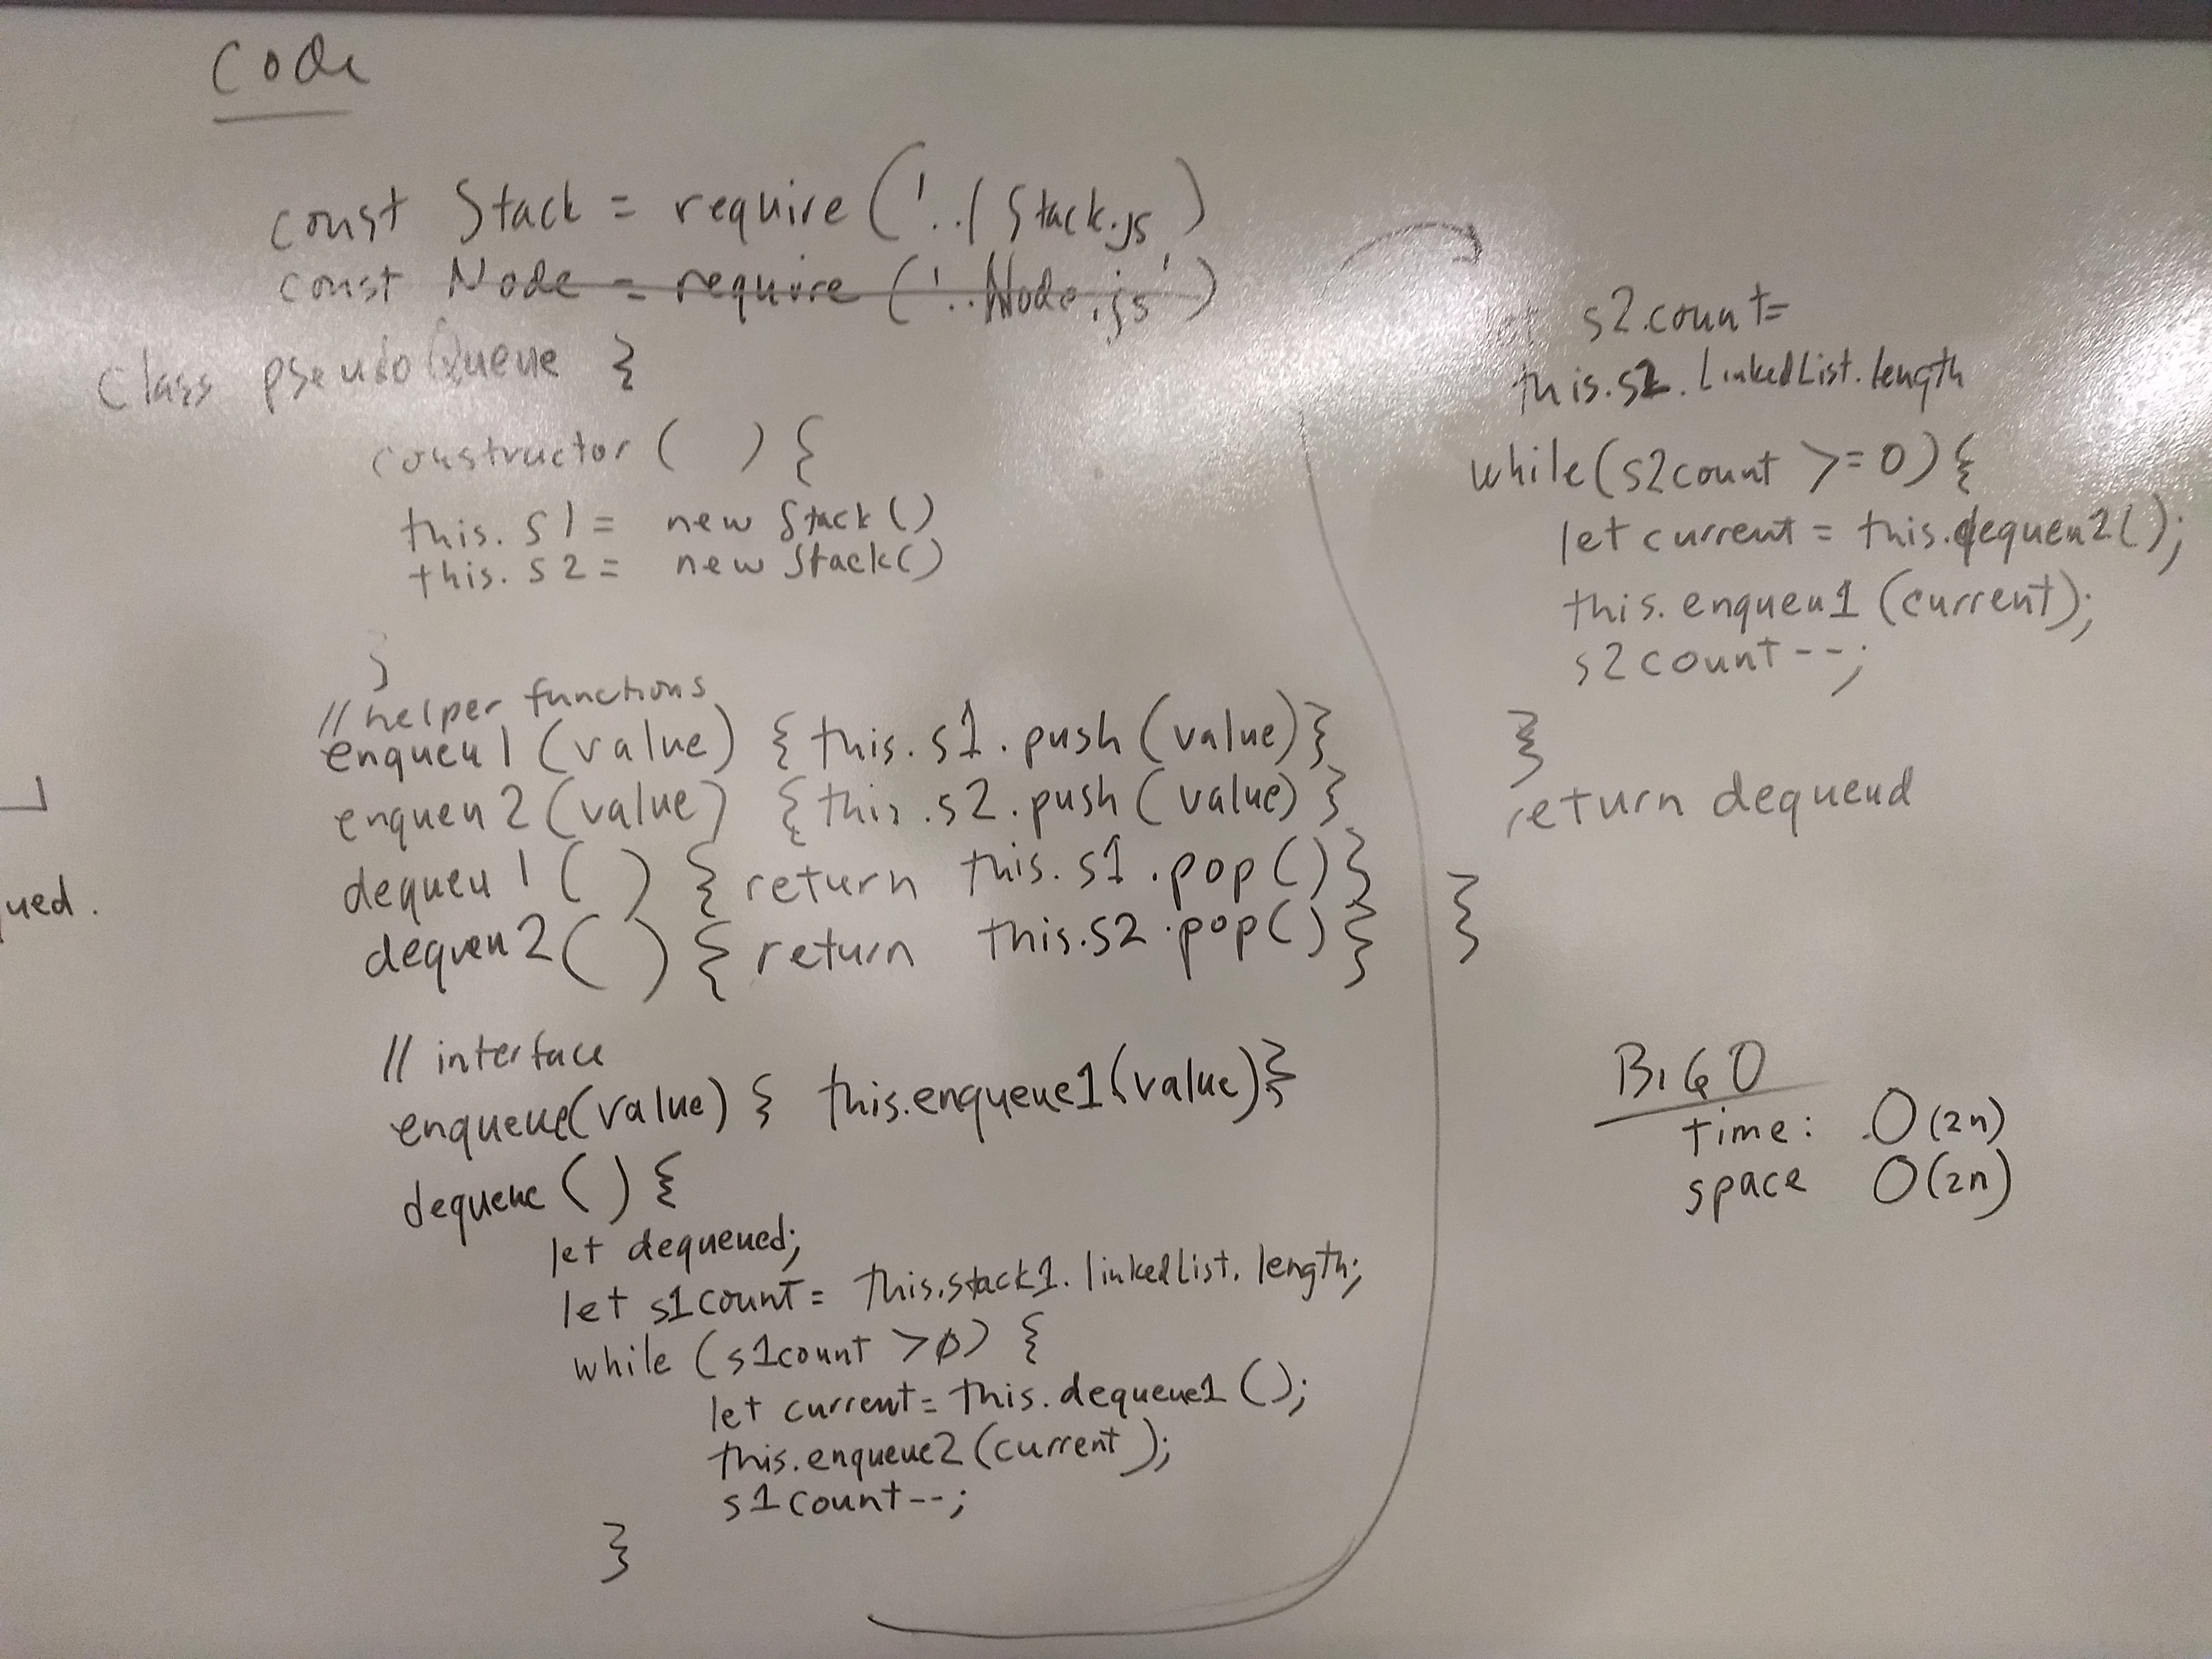 Code
const Stack = require('../Stack.js')
const Node = require('..Node.js')
class pseudoQueue {
constructor ( ) {
this.s1 = new Stack()
this.s2 = new Stack()
}
// helper functions
enqueu1 (value) {this.s1.push(value)}
enqueu2 (value) {this.s2.push(value)}
dequeu1 ( ) {return this.s1.pop()}
dequeu2 ( ) {return this.s2.pop()}
// interface
enqueue(value) { this.enqueue1(value)}
dequeue () {
let dequeued;
let s1count = this.stack1.linkedlist.length;
while (s1count > 0) {
let current = this.dequeue1();
this.enqueue2(current);
s1count--;
}
s2.count =
this.s2.linkedList.length
while(s2count >= 0){
let current = this.dequeu2();
this.enqueu1(current);
s2count--;
}
return dequeud
}
BIG O
time: O(2n)
space O(2n)
ued.